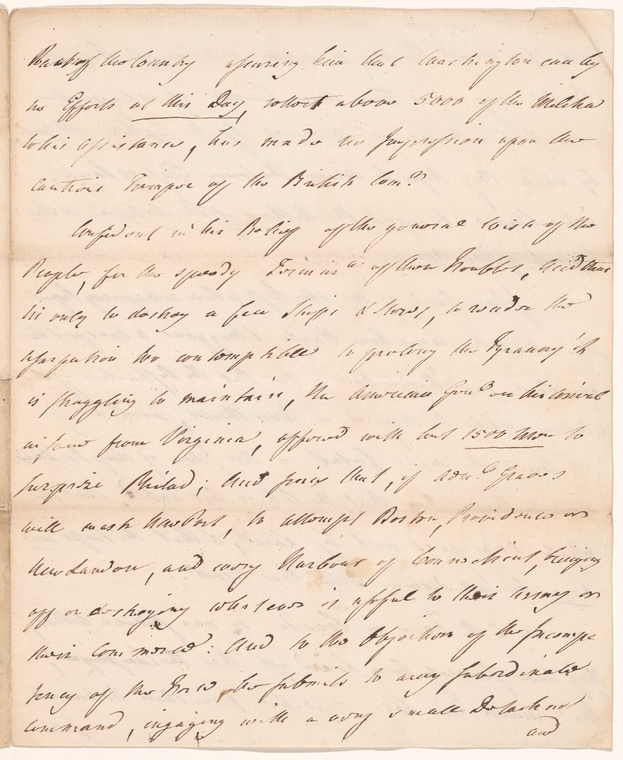 of the Country assuring him that Washington can by
no Efforts at this Day, collect above 5000 of the Militia
to his assistance, has made no Impression upon the
cautious Temper of the British Com.r
Confident in his Belief of the general wish of the
People, for the speedy of these Troubles, and that
tis only to destroy a few Ships & Stores, to render the
Usurpation too contemptible to prolong the Tyranny it
is struggling to maintain, the American Gen.l on his arrival
from Virginia, offered with but 1500 Men to
surprize Philad; and since that, if Adm.l Graves
will mask NewPort, to attempt Boston, Providence or
New London, and every Harbour of Connecticut, bringing
off or destroying whatever is useful to their Army or
their Commerce: and to the Objection of the Incompe
tency of the Force he submits to any subordinate
command, ingaging with a very small Detachmt
and